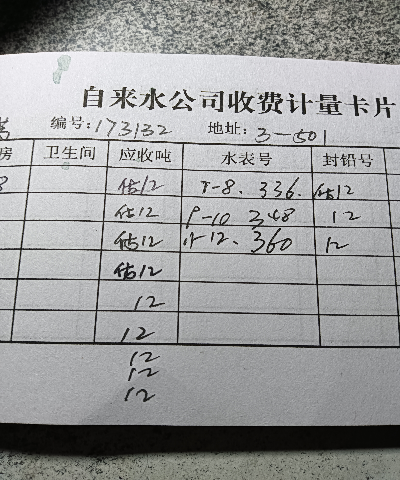 自来水公司收费计量卡片
编号:173132 地址:3-501
房 卫生间 应收吨 水表号 封铅号
8 估12 7-8. 336. 估12
估12 9-10 348 12
估12 11-12. 360 12
估12
12
12
12
12
12